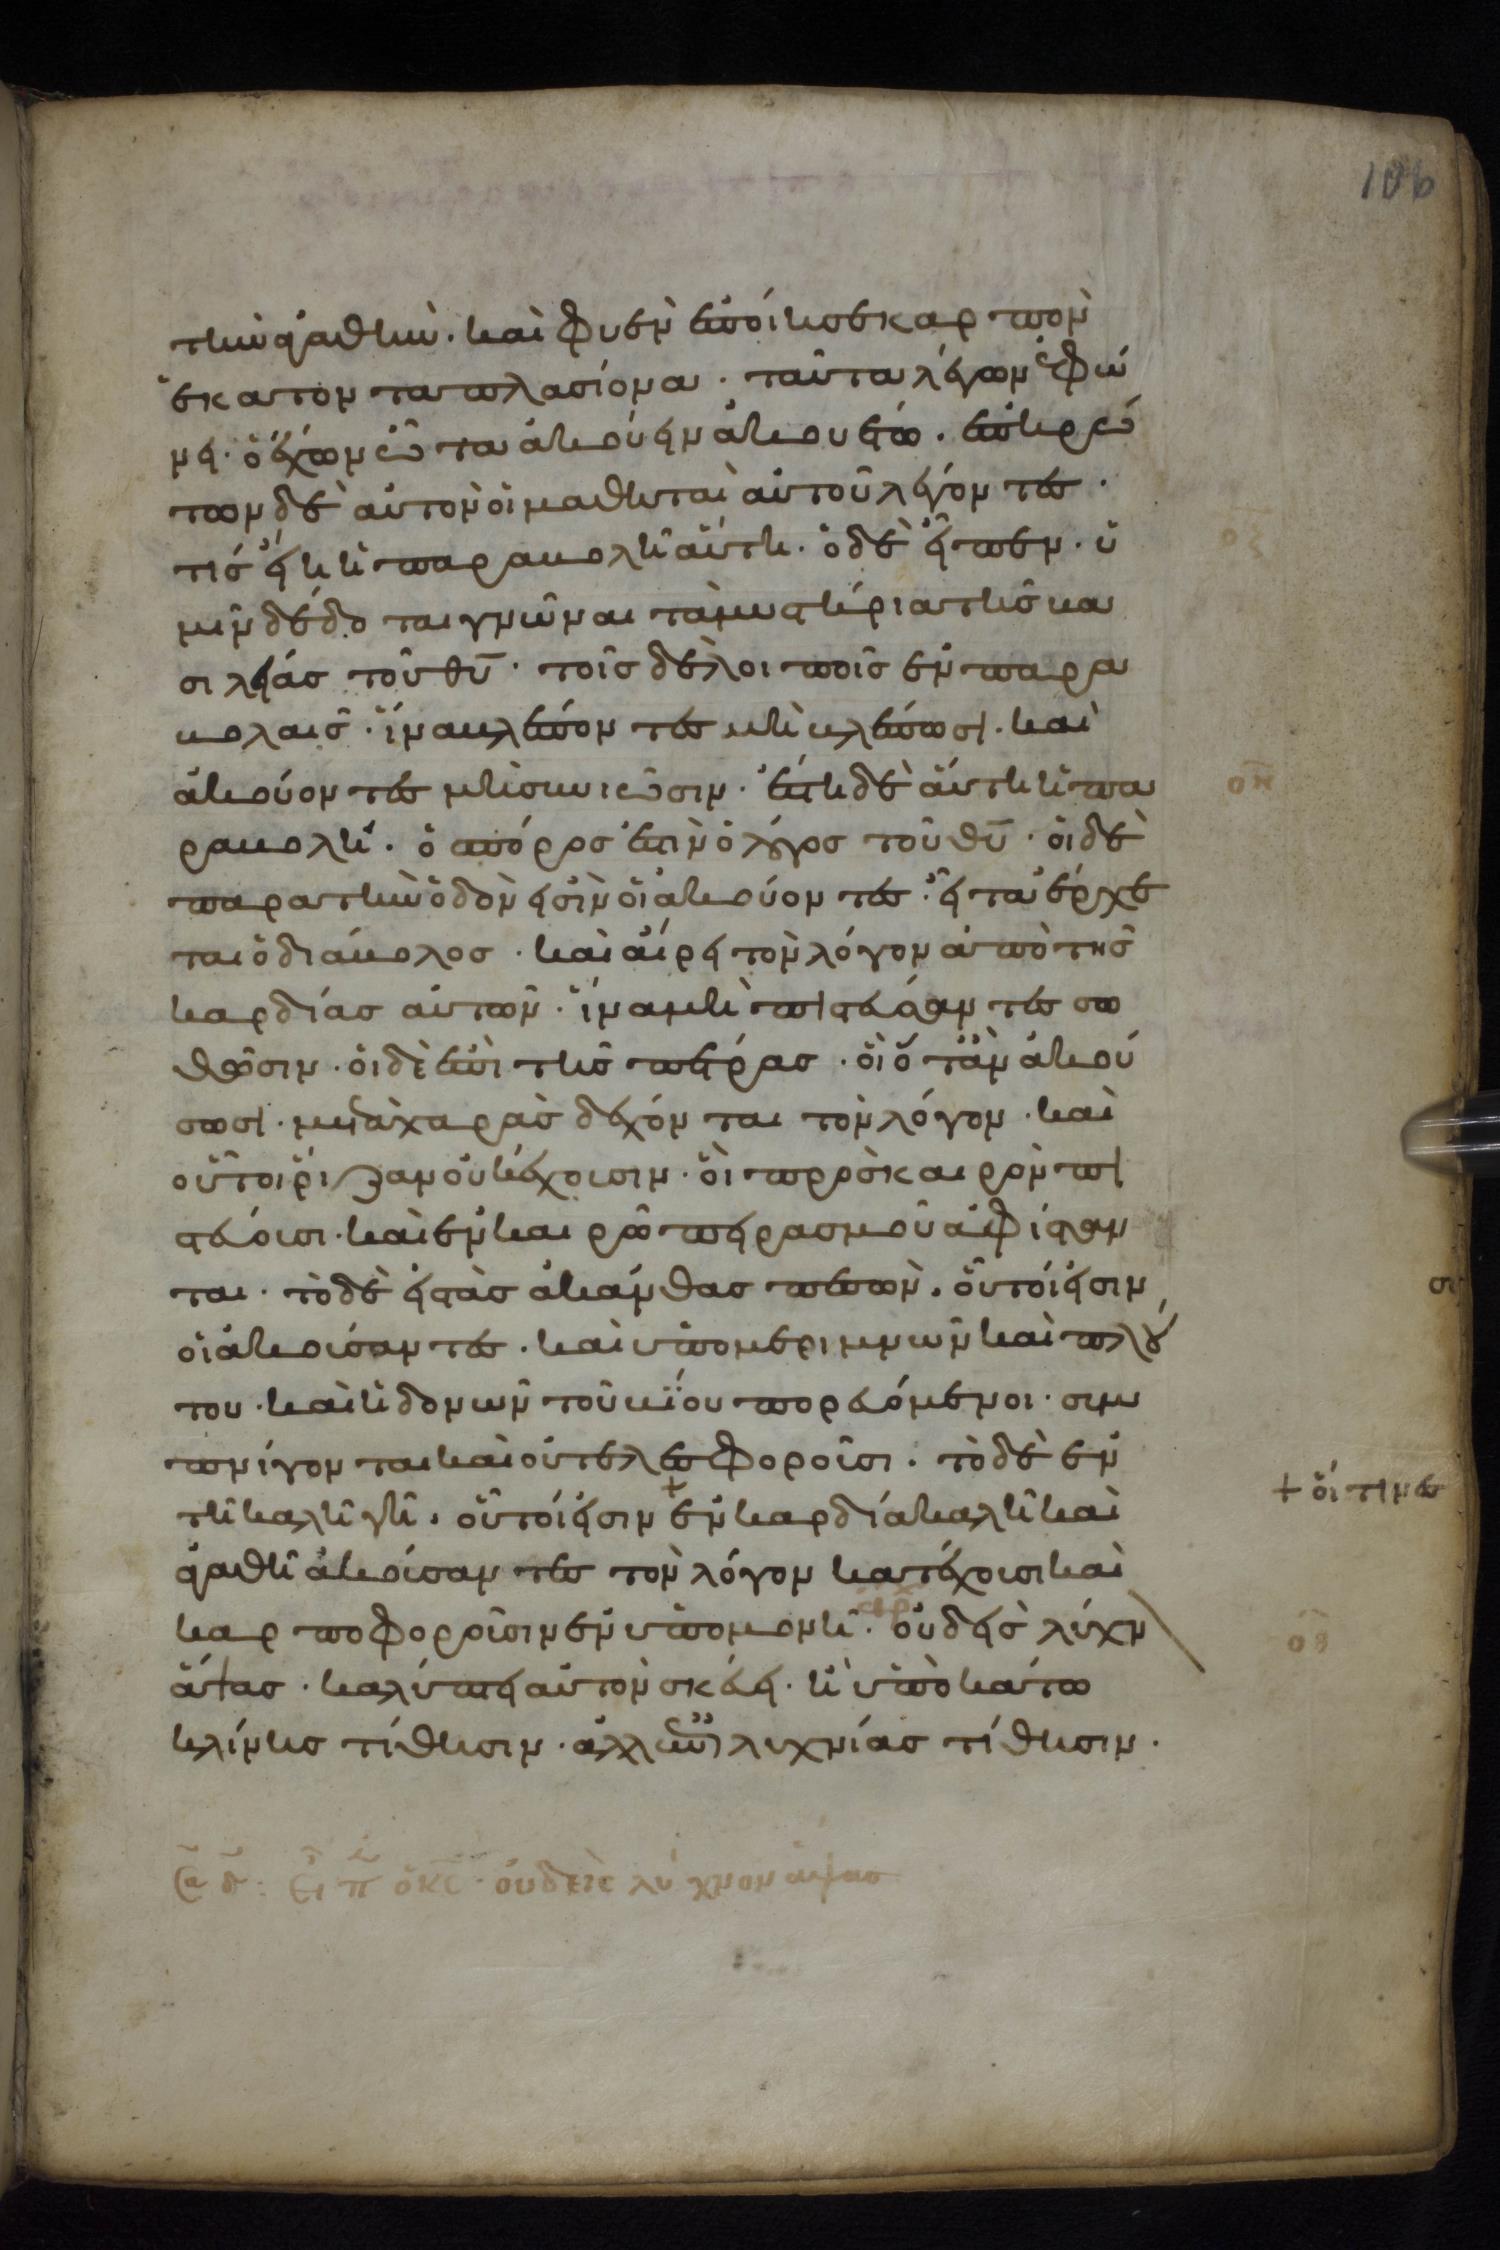 106
τὴν ἀγαθὴν· καὶ φυὲν ἐποίησε καρπὸν
ἑκατονταπλασίονα· ταῦτα λέγων ἐφώ
νει· ὁ ἔχων ὦτα ἀκούειν ἀκουέτω· ἐπηρώ
των δὲ αὐτὸν οἱ μαθηταὶ αὐτοῦ λέγοντες·
τίς εἴη ἡ παραβολὴ αὕτη· ὁ δὲ εἶπεν· ὑ
μῖν δέδοται γνῶναι τὰ μυστήρια τῆς βα
σιλείας τοῦ θῦ· τοῖς δὲ λοιποῖς ἐν παρα
βολαῖς· ἵνα βλέποντες μὴ βλέπωσι· καὶ
ἀκούοντες μὴ συνιῶσιν· ἔστι δὲ αὕτη ἡ πα
ραβολή· ὁ σπόρος ἐστὶν ὁ λόγος τοῦ θῦ· οἱ δὲ
παρὰ τὴν ὁδὸν εἰσὶν οἱ ἀκούοντες· εἶτα ἔρχε
ται ὁ διάβολος· καὶ αἴρει τὸν λόγον ἀπὸ τῆς
καρδίας αὐτῶν· ἵνα μὴ πιστεύσαντες σω
θῶσιν· οἱ δὲ ἐπὶ τῆς πέτρας· οἳ ὅταν ἀκού
σωσι· μετὰ χαρᾶς δέχονται τὸν λόγον· καὶ
οὗτοι ῥίζαν οὐκ ἔχουσιν· οἳ πρὸς καιρὸν πι
στεύουσι· καὶ ἐν καιρῶ πειρασμοῦ ἀφίσταν
ται· τὸ δὲ εἰς τὰς ἀκάνθας πεσὸν· οὗτοί εἰσιν
οἱ ἀκούσαντες· καὶ ὑπὸ μεριμνῶν καὶ πλού
του· καὶ ἡδονῶν τοῦ βίου πορευόμενοι· συμ
πνίγονται καὶ οὐ τελεσφοροῦσι· τὸ δὲ ἐν
τῆ καλῆ γῆ· οὗτοί εἰσιν + ἐν καρδία καλῆ καὶ
+ οἵτινες
ἀγαθῆ ἀκούσαντες τὸν λόγον κατέχουσι καὶ
καρποφοροῦσιν ἐν ὑπομονῆ· οὐδεὶς λύχν
ἅψας· καλύπτει αὐτὸν σκεύει· ἢ ὑποκάτω
κλίνης τίθησιν· ἀλλ' ἐπὶ λυχνίας τίθησιν·
οὐδεὶς λύχνον ἅψας